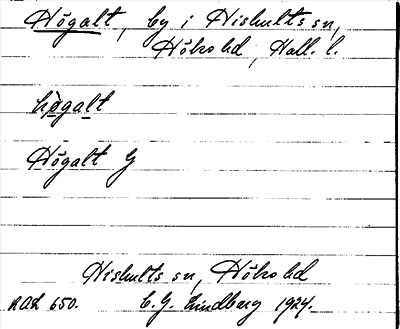 Högalt, by i Hishults sn,
Höks hd, Hall. l.
högalt
Högalt G
Hishults sn, Höks hd
NAH 650. C. G. Lindberg 1924.